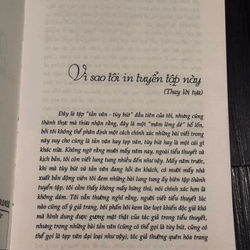 Vì sao tôi in tuyển tập này
(Thay lời tựa)
Đây là tập "tản văn - tùy bút" đầu tiên của tôi, nhưng cũng
thành thực mà thừa nhận rằng, đây là một "mâm lòng dê" hổ lốn,
bởi tôi không thể phân định một cách chính xác những bài viết trong
này suy cho cùng là tản văn hay tạp văn, tùy bút hay là một cái gì
khác nữa. Không ngờ rằng mấy năm nay, ngoài tiểu thuyết và
kịch bản, tôi còn viết lung tung nhiều đến như vậy. Mấy năm trước,
khi mà tùy bút và tản văn đang hồi ăn khách, có mấy nhà
xuất bản động viên tôi đem những bài lung tung ấy biên tập thành
tuyển tập, tôi cảm thấy không mấy hứng thú, nói chính xác hơn là
không dám. Tôi vẫn thường nghĩ rằng, người viết tiểu thuyết
nên cố ý giả trang, bởi phần lớn độc giả khó mà
mô hình dung được gương mặt thật của tác giả trong tiểu thuyết,
nhưng trong những bài tản văn (cũng có thể gọi là tùy bút, cũng
có thể gọi là tạp văn đại loại như vậy), tác giả thường quên hóa trang